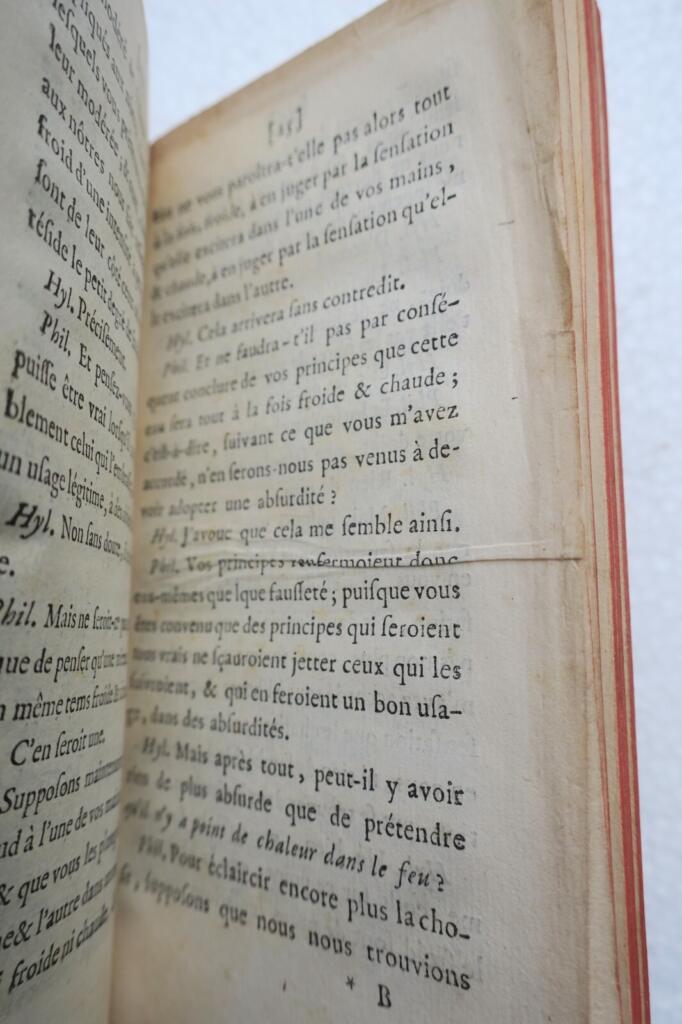 pliqués aux
lesquels vous
leur modérée ; &
aux nôtres, nous
froid d'une
ſont de leur côté
réſide le petit degré de
Hyl. Préciſément.
Phil. Et penſez-vous
puiſſe être vrai lorſqu'
blement celui qui
un uſage légitime, à
Hyl. Non ſans doute,
e.
Phil. Mais ne ſeroit-ce
que de penſer qu'une
n même tems froide &
C'en ſeroit une.
Suppoſons maintenant
nd à l'une de vos
& que vous les
e & l'autre dans
froide ni chaude,
[25]
ne vous paroîtra-t'elle pas alors tout
à la fois, froide, à en juger par la ſenſation
qu'elle excitera dans l'une de vos mains,
& chaude, à en juger par la ſenſation qu'el-
le excitera dans l'autre.
Hyl. Cela arrivera ſans contredit.
Phil. Et ne faudra-t'il pas par conſé-
quent conclure de vos principes que cette
eau ſera tout à la fois froide & chaude ;
c'eſt-à-dire, ſuivant ce que vous m'avez
accordé, n'en ſerons-nous pas venus à de-
voir adopter une abſurdité ?
Hyl. J'avoue que cela me ſemble ainſi.
Phil. Vos principes renfermoient donc
eux-mêmes quelque fauſſeté ; puiſque vous
êtes convenu que des principes qui ſeroient
vrais ne ſçauroient jetter ceux qui les
ſuivroient, & qui en feroient un bon uſa-
ge, dans des abſurdités.
Hyl. Mais après tout, peut-il y avoir
rien de plus abſurde que de prétendre
qu'il n'y a point de chaleur dans le feu ?
Phil. Pour éclaircir encore plus la cho-
ſe, ſuppoſons que nous nous trouvions
* B